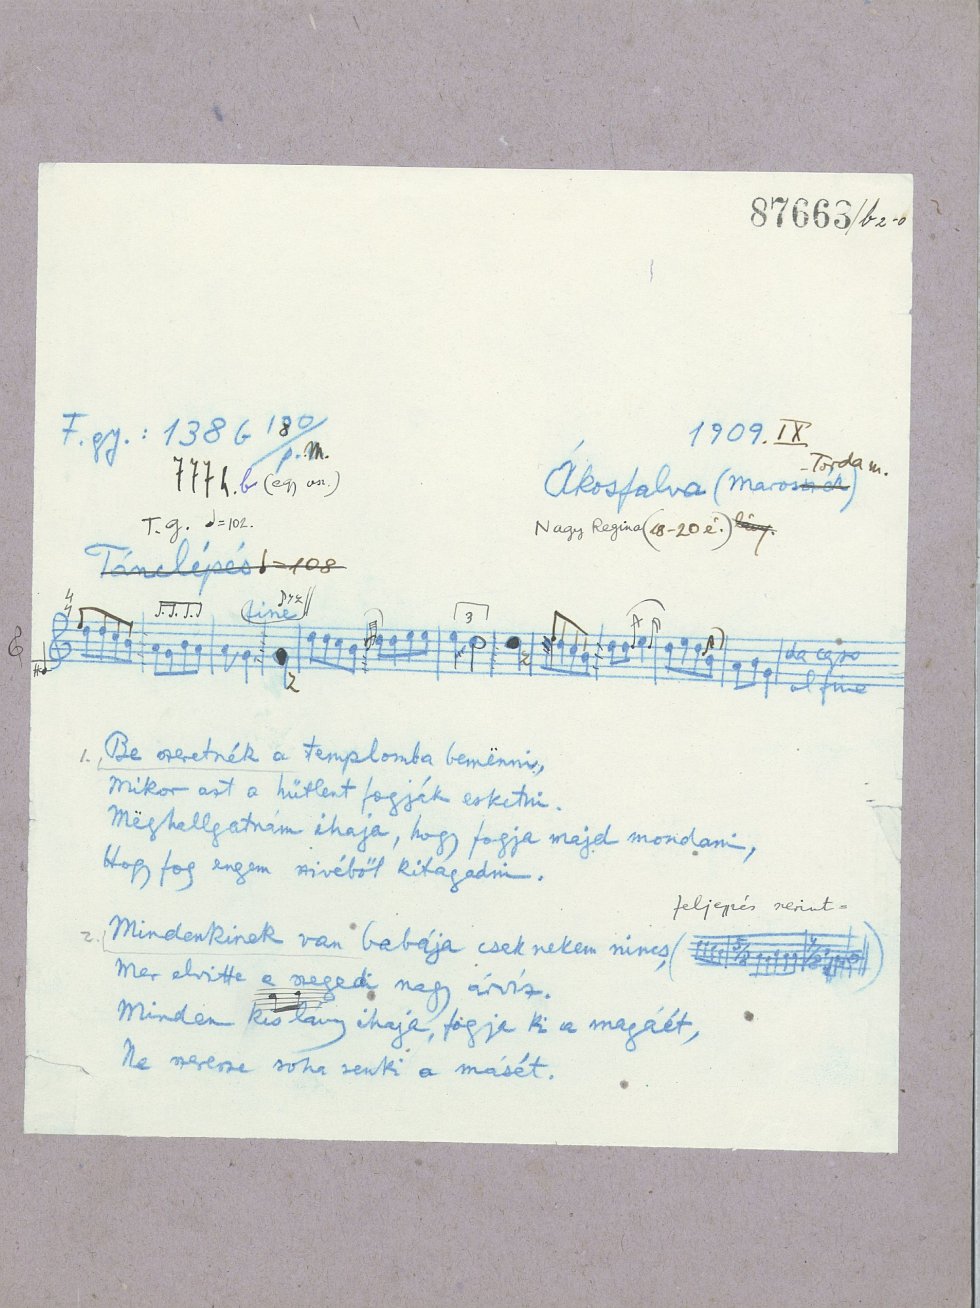 87663/b 2-0
F. gy.: 138 b 180 / p. m.
1909. IX
777 h. b (egy vsz.)
Ákosfalva (Maros-Torda m.
T. g. ♩=102.
Nagy Regina (18-20 é.) lány.
Tánclépés ♩=108
fine
3
da capo
al fine
1. Be szeretnék a templomba bemënni,
Mikor azt a hütlent fogják esketni.
Mëghallgatnám ihaja, hogy fogja majd mondani,
Hogy fog engem szivéből kitagadni.
feljegyzés szerint =
2. Mindenkinek van babája csek nekem nincs,
Mer elvitte a szegedi nagy árvíz.
Minden kis lány ihajá, fogja ki a magáét,
Ne szeresse soha senki a másét.